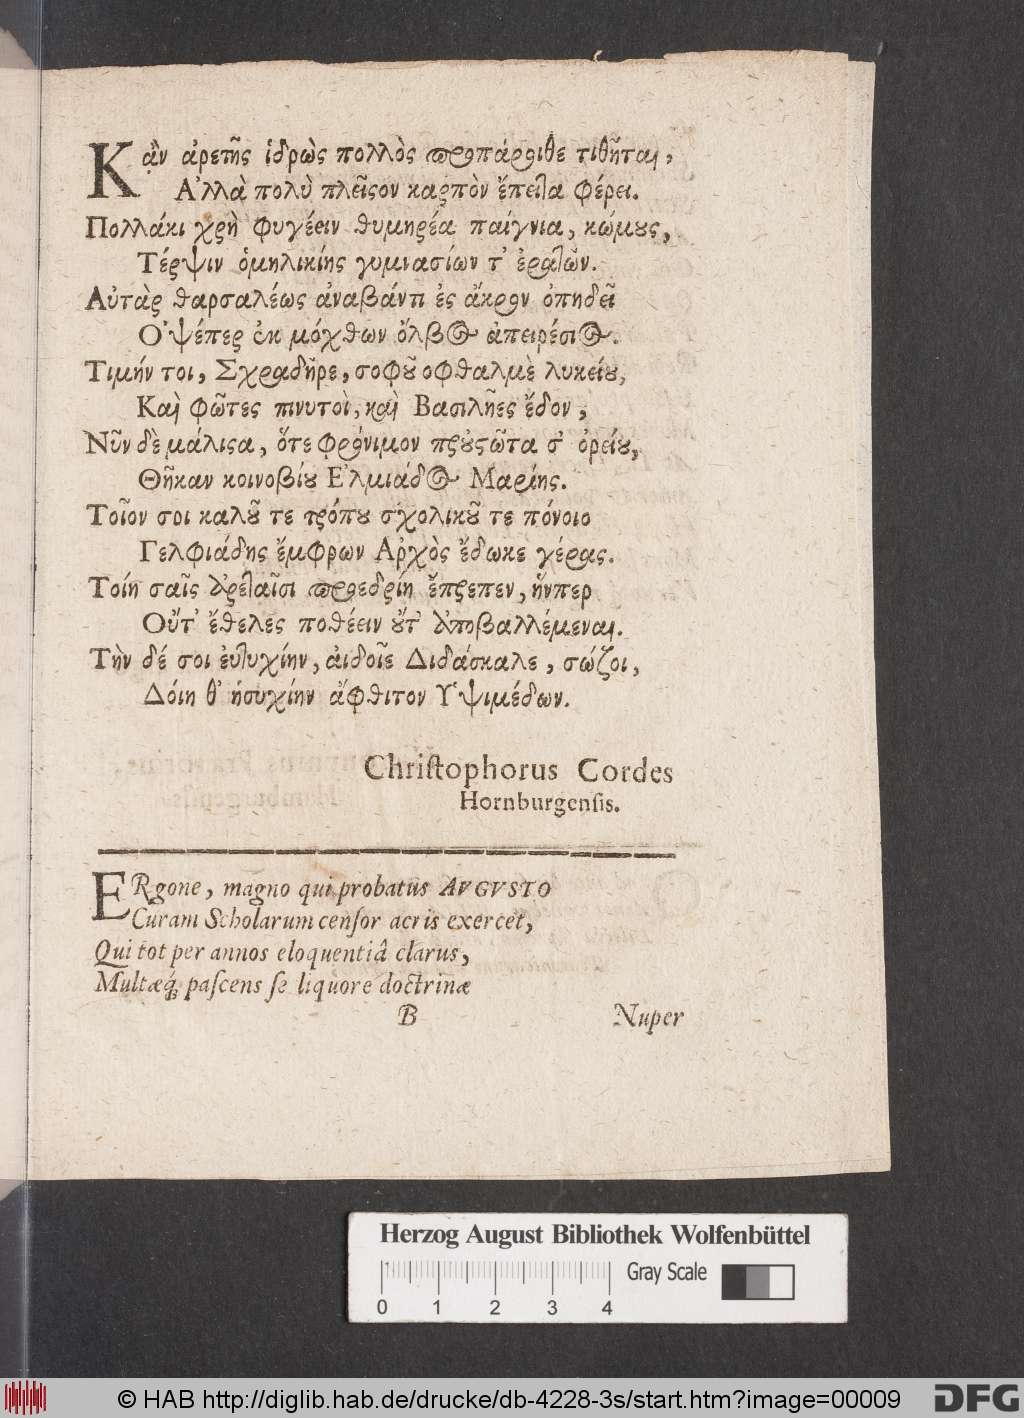 Κᾂν ἀρετῆς ἱδρὼς πολλὸς προπάροιθε τιθῆται,
Ἀλλὰ πολὺ πλεῖστον καρπὸν ἔπειτα φέρει.
Πολλάκι χρὴ φυγέειν θυμηρέα παίγνια, κώμους,
Τέρψιν ὁμηλικίης γυμνασίων τ' ἐρατῶν.
Αὐτὰρ θαρσαλέως ἀναβάντι ἐς ἄκρον ὀπηδεῖ
Ὀψέπερ ἐκ μόχθων ὄλβος ἀπειρέσιος.
Τιμήν τοι, Σχραδῆρε, σοφοῦ οφθαλμὲ λυκείου,
Καὶ φῶτες πινυτοὶ, καὶ Βασιλῆες ἔδον,
Νῦν δὲ μάλιστα, ὅτε φρόνιμον προυστῶτα σ' ὀρείου,
Θῆκαν κοινοβίου Ἐλμιάδος Μαρίης.
Τοῖον σοι καλοῦ τε τρόπου σχολικοῦ τε πόνοιο
Γελφιάδης ἔμφρων Ἀρχὸς ἔδωκε γέρας.
Τοίη σαῖς ἀρεταῖσι προεδρίη ἔπρεπεν, ἥνπερ
Οὔτ' ἔθελες ποθέειν οὔτ' ἀποβαλλέμεναι.
Τὴν δέ σοι εὐτυχίην, αἰδοῖε Διδάσκαλε, σώζοι,
Δόιη θ' ἡσυχίην ἄφθιτον Ὑψιμέδων.
Chriſtophorus Cordes
Hornburgenſis.
ERgone, magno qui probatus AVGVSTO
Curam Scholarum cenſor acris exercet,
Qui tot per annos eloquentiâ clarus,
Multæq́; paſcens ſe liquore doctrinæ
B Nuper
Herzog August Bibliothek Wolfenbüttel
Gray Scale
0 1 2 3 4
© HAB http://diglib.hab.de/drucke/db-4228-3s/start.htm?image=00009
DFG